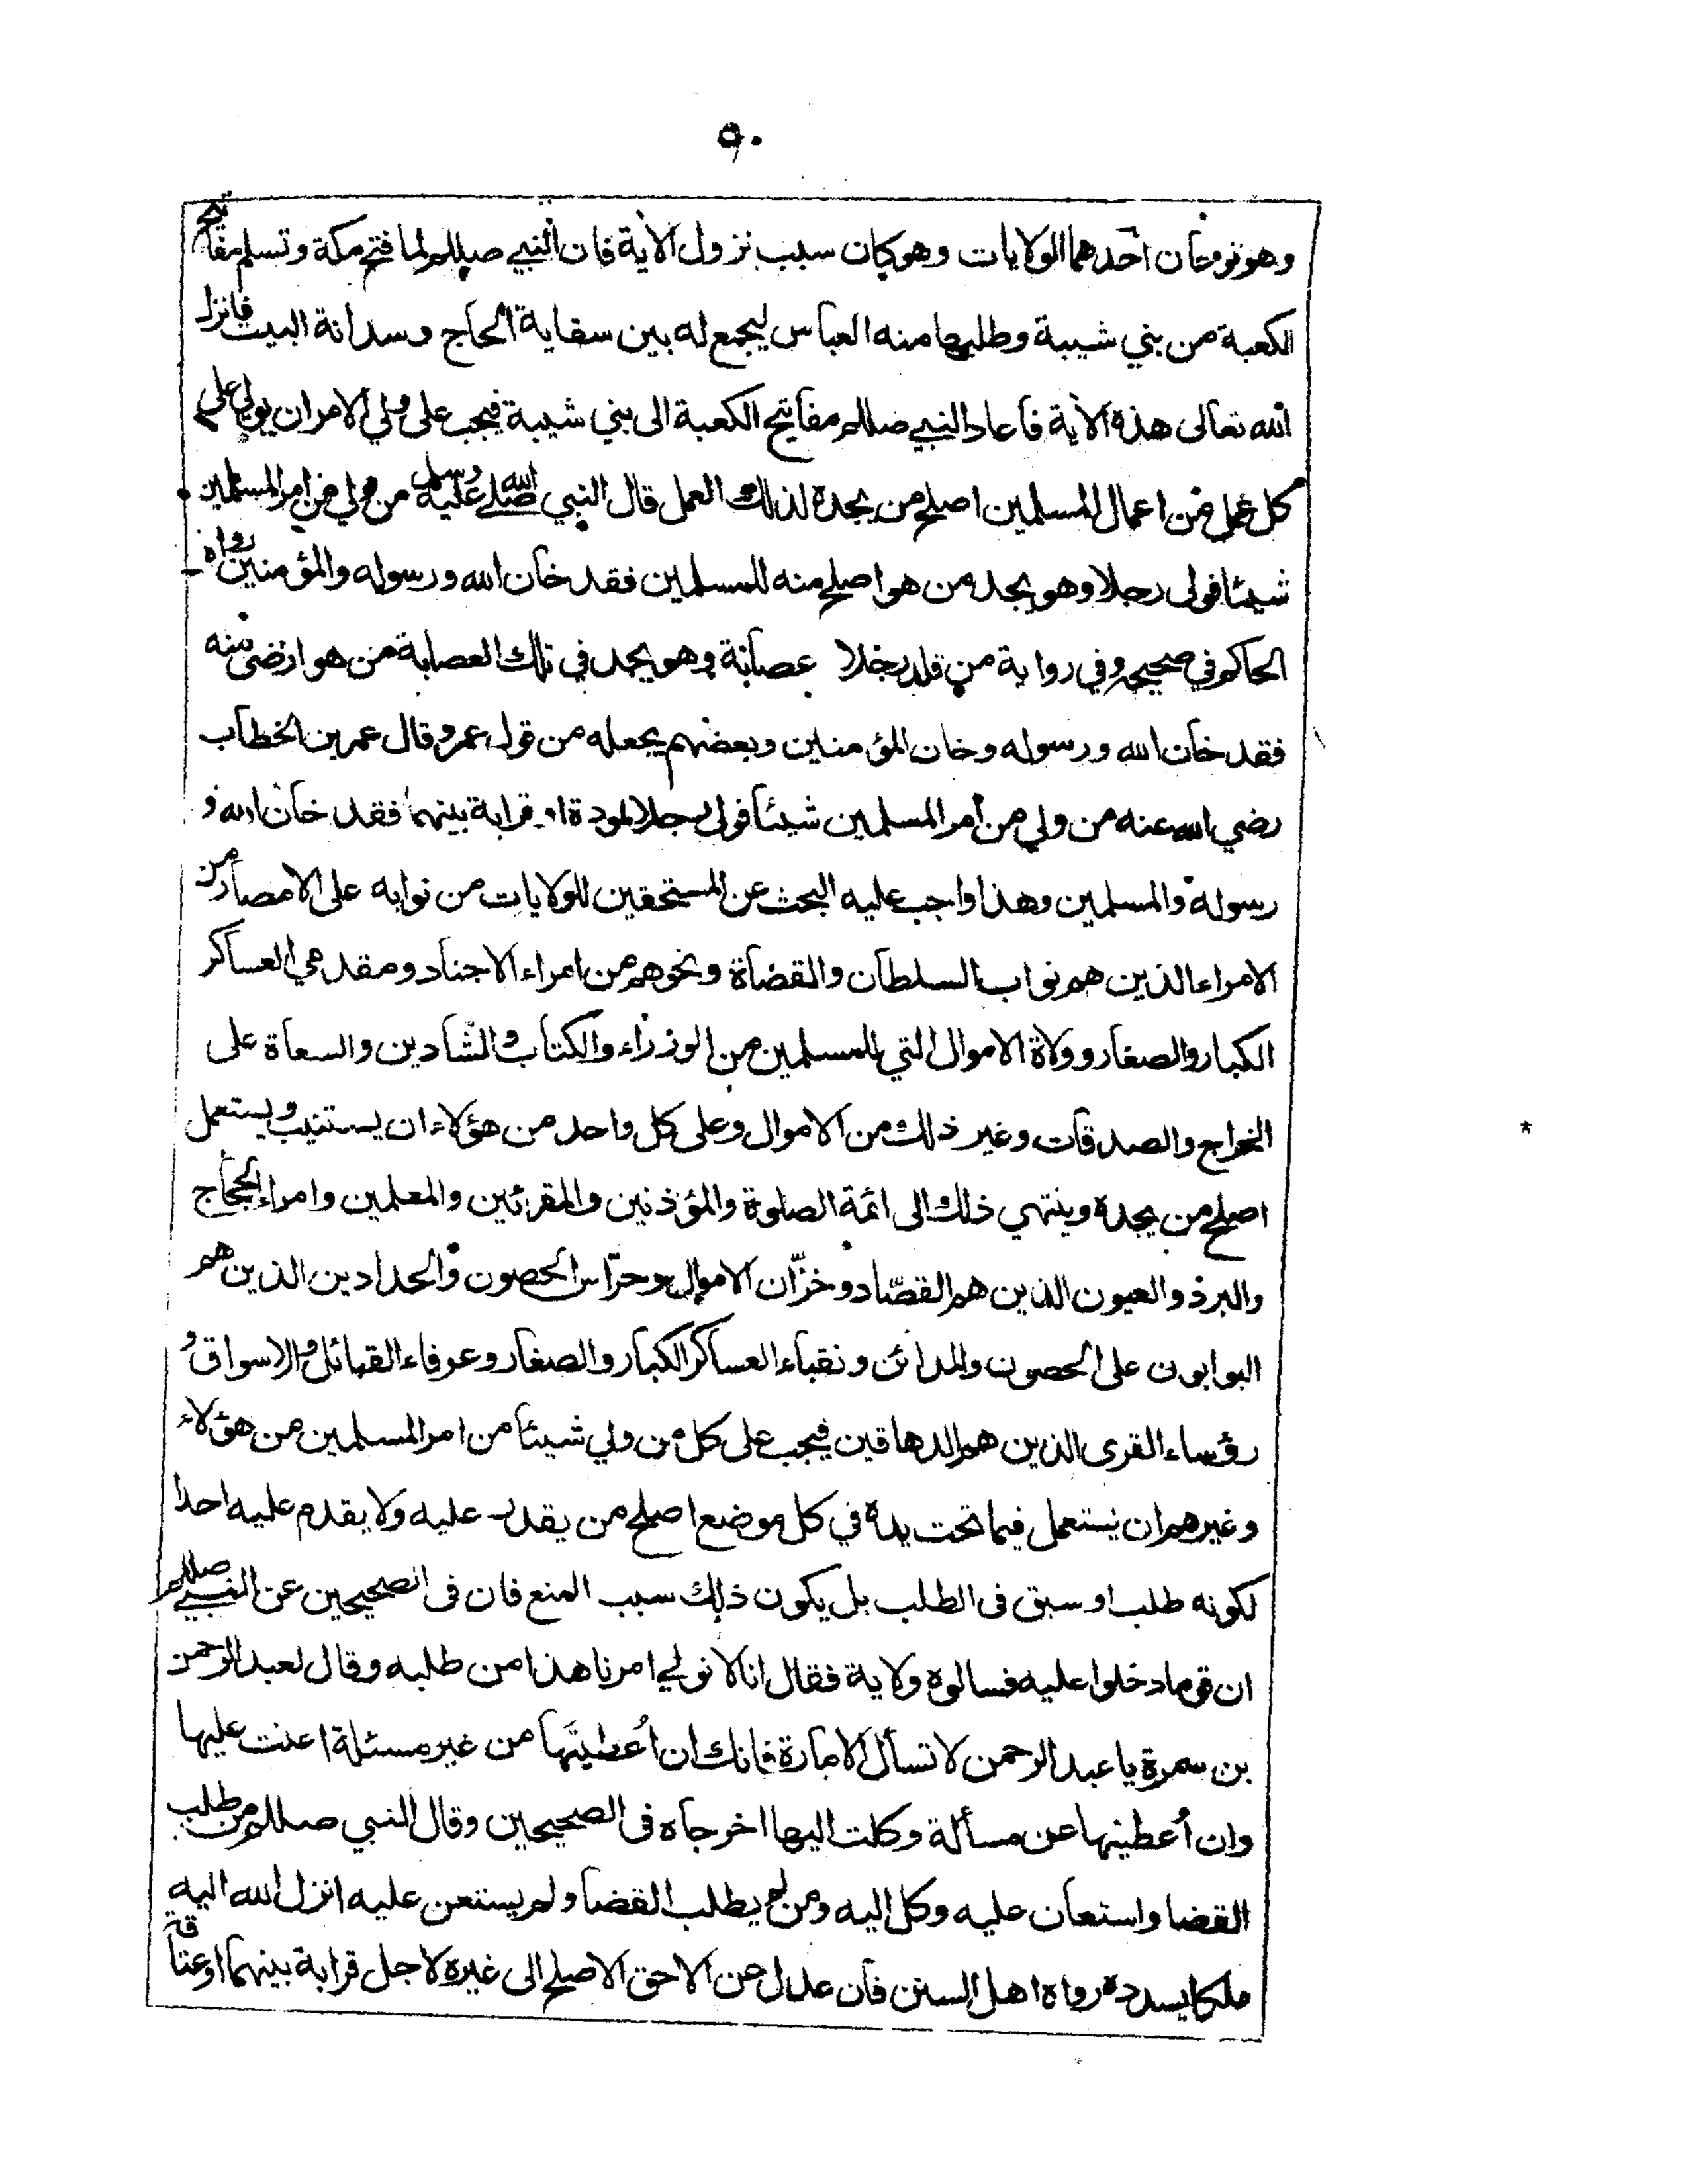 ٩٠
وهو نوعان احدهما الولايات وهو كان سبب نزول الآية فان النبي صللم لما فتح مكة وتسلم مفاتيح
الكعبة من بني شيبة وطلبها منه العباس ليجمع له بين سقاية الحاج وسدانة البيت فانزل
الله تعالى هذه الآية فاعاد النبي صللم مفاتيح الكعبة الى بني شيبة فيجب على ولي الامر ان يولي على
كل عمل من اعمال المسلمين اصلح من يجده لذلك العمل قال النبي صلى الله عليه وسلم من ولي من امر المسلمين
شيئا فولى رجلا وهو يجد من هو اصلح منه للمسلمين فقد خان الله ورسوله والمؤمنين رواه
الحاكم في صحيحه وفي رواية من قلد رجلا عصابة وهو يجد في تلك العصابة من هو ارضى منه
فقد خان الله ورسوله وخان المؤمنين وبعضهم يجعله من قول عمر وقال عمر بن الخطاب
رضي الله عنه من ولي من أمر المسلمين شيئا فولى رجلا لمودة او قرابة بينهما فقد خان الله و
رسوله والمسلمين وهذا واجب عليه البحث عن المستحقين للولايات من نوابه على الامصار من
الامراء الذين هم نواب السلطان والقضاة ونحوهم من امراء الاجناد ومقدمي العساكر
الكبار والصغار وولاة الاموال التي للمسلمين من الوزراء والكتاب والشادين والسعاة على
الخراج والصدقات وغير ذلك من الاموال وعلى كل واحد من هؤلاء ان يستنيب ويستعمل
اصلح من يجده وينتهي ذلك الى ائمة الصلوة والمؤذنين والمقرئين والمعلمين وامراء الحجاج
والبرد والعيون الذين هم القصّاد وخزّان الاموال وحرّاس الحصون والحدادين الذين هم
البوابون على الحصون والمدائن ونقباء العساكر الكبار والصغار وعرفاء القبائل والاسواق و
رؤساء القرى الذين هم الدهاقين فيجب على كل من ولي شيئا من امر المسلمين من هؤلاء
وغيرهم ان يستعمل فيما تحت يده في كل موضع اصلح من يقدر عليه ولا يقدم عليه احدا
لكونه طلب او سبق فى الطلب بل يكون ذلك سبب المنع فان فى الصحيحين عن النبي صللم
ان قوما دخلوا عليه فسالوه ولاية فقال انا لا نولي امرنا هذا من طلبه وقال لعبد الرحمن
بن سمرة يا عبد الرحمن لا تسأل الامارة فانك ان اُعطيتَها من غير مسئلة اعنت عليها
وان اُعطيتها عن مسألة وكلت اليها اخرجاه فى الصحيحين وقال النبي صللم من طلب
القضا واستعان عليه وكل اليه ومن لم يطلب القضا ولم يستعن عليه انزل الله اليه
ملكا يسدده رواه اهل السنن فان عدل عن الاحق الاصلح الى غيره لاجل قرابة بينهما او عتاقة